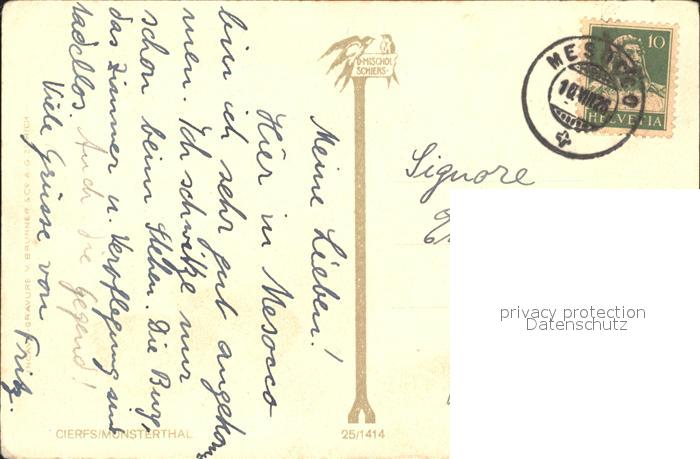 Meine Lieben!
Hier in Mesocco
bin ich sehr gut angekom
men. Ich schwitze nur
schon beim Stehen. Die Burg,
das Zimmer u. Verpflegung sind
tadellos. Auch die Gegend!
Viele Grüsse von Fritz.
D. MISCHOL
SCHIERS
MESOCCO
10
HELVETIA
Signore
CIERFS/MÜNSTERTHAL
25/1414
privacy protection
Datenschutz